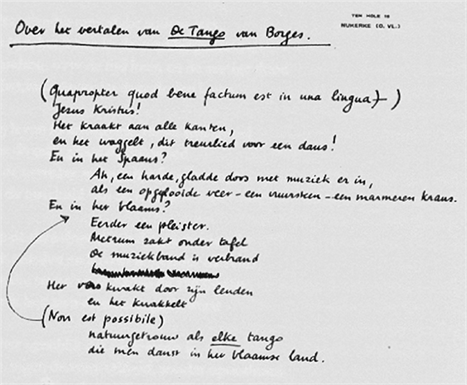 TEN HOLE 18
NUKERKE (O. VL.)
Over het vertalen van De Tango van Borges.
(Quapropter quod bene factum est in una lingua –)
Jezus Kristus!
Het kraakt aan alle kanten,
en het waggelt, dit treurlied voor een dans!
En in het Spaans?
Ah, een harde, gladde doos met muziek er in,
als een opgeplooide veer – een vuursken – een marmeren kraus.
En in het Vlaams?
Eerder een pleister.
Metrum zakt onder tafel
De muziekband is verbrand
Het kwakt door zijn lenden
en het kwakkelt
(Non est possibile)
natuurgetrouw als elke tango
die men danst in het Vlaamse land.